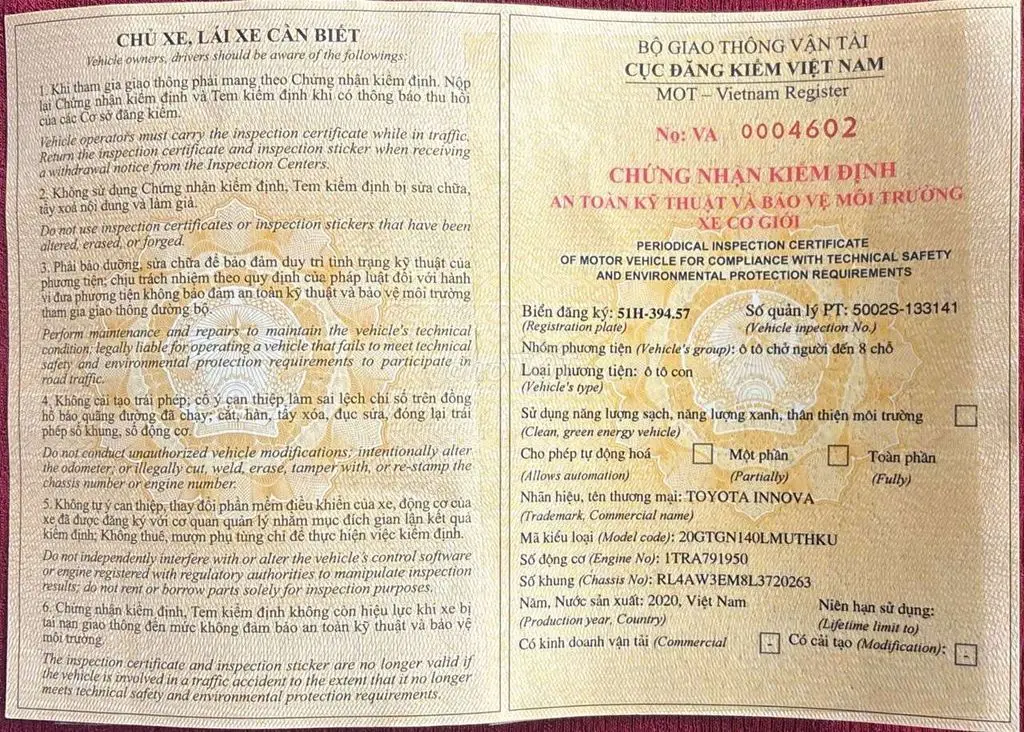 CHỦ XE, LÁI XE CẦN BIẾT
Vehicle owners, drivers should be aware of the followings:
1. Khi tham gia giao thông phải mang theo Chứng nhận kiểm định. Nộp
lại Chứng nhận kiểm định và Tem kiểm định khi có thông báo thu hồi
của các Cơ sở đăng kiểm.
Vehicle operators must carry the inspection certificate while in traffic.
Return the inspection certificate and inspection sticker when receiving
a withdrawal notice from the Inspection Centers.
2. Không sử dụng Chứng nhận kiểm định, Tem kiểm định bị sửa chữa,
tẩy xoá nội dung và làm giả.
Do not use inspection certificates or inspection stickers that have been
altered, erased, or forged.
3. Phải bảo dưỡng, sửa chữa để bảo đảm duy trì tình trạng kỹ thuật của
phương tiện; chịu trách nhiệm theo quy định của pháp luật đối với hành
vi đưa phương tiện không bảo đảm an toàn kỹ thuật và bảo vệ môi trường
tham gia giao thông đường bộ.
Perform maintenance and repairs to maintain the vehicle's technical
condition; legally liable for operating a vehicle that fails to meet technical
safety and environmental protection requirements to participate in
road traffic.
4. Không cải tạo trái phép; cố ý can thiệp làm sai lệch chỉ số trên đồng
hồ báo quãng đường đã chạy; cắt, hàn, tẩy xóa, đục sửa, đóng lại trái
phép số khung, số động cơ.
Do not conduct unauthorized vehicle modifications; intentionally alter
the odometer; or illegally cut, weld, erase, tamper with, or re-stamp the
chassis number or engine number.
5. Không tự ý can thiệp, thay đổi phần mềm điều khiển của xe, động cơ của
xe đã được đăng ký với cơ quan quản lý nhằm mục đích gian lận kết quả
kiểm định; Không thuê, mượn phụ tùng chỉ để thực hiện việc kiểm định.
Do not independently interfere with or alter the vehicle's control software
or engine registered with regulatory authorities to manipulate inspection
results; do not rent or borrow parts solely for inspection purposes.
6. Chứng nhận kiểm định, Tem kiểm định không còn hiệu lực khi xe bị
tai nạn giao thông đến mức không đảm bảo an toàn kỹ thuật và bảo vệ
môi trường.
The inspection certificate and inspection sticker are no longer valid if
the vehicle is involved in a traffic accident to the extent that it no longer
meets technical safety and environmental protection requirements.
BỘ GIAO THÔNG VẬN TẢI
CỤC ĐĂNG KIỂM VIỆT NAM
MOT – Vietnam Register
Nọ: VA 0004602
CHỨNG NHẬN KIỂM ĐỊNH
AN TOÀN KỸ THUẬT VÀ BẢO VỆ MÔI TRƯỜNG
XE CƠ GIỚI
PERIODICAL INSPECTION CERTIFICATE
OF MOTOR VEHICLE FOR COMPLIANCE WITH TECHNICAL SAFETY
AND ENVIRONMENTAL PROTECTION REQUIREMENTS
Biển đăng ký: 51H-394.57 Số quản lý PT: 5002S-133141
(Registration plate) (Vehicle inpection No.)
Nhóm phương tiện (Vehicle's group): ô tô chở người đến 8 chỗ
Loại phương tiện: ô tô con
(Vehicle's type)
Sử dụng năng lượng sạch, năng lượng xanh, thân thiện môi trường
(Clean, green energy vehicle)
Cho phép tự động hoá Một phần Toàn phần
(Allows automation) (Partially) (Fully)
Nhãn hiệu, tên thương mại: TOYOTA INNOVA
(Trademark, Commercial name)
Mã kiểu loại (Model code): 20GTGN140LMUTHKU
Số động cơ (Engine No): 1TRA791950
Số khung (Chassis No): RL4AW3EM8L3720263
Năm, Nước sản xuất: 2020, Việt Nam Niên hạn sử dụng:
(Production year, Country) (Lifetime limit to)
Có kinh doanh vận tải (Commercial - Có cải tạo (Modification): -